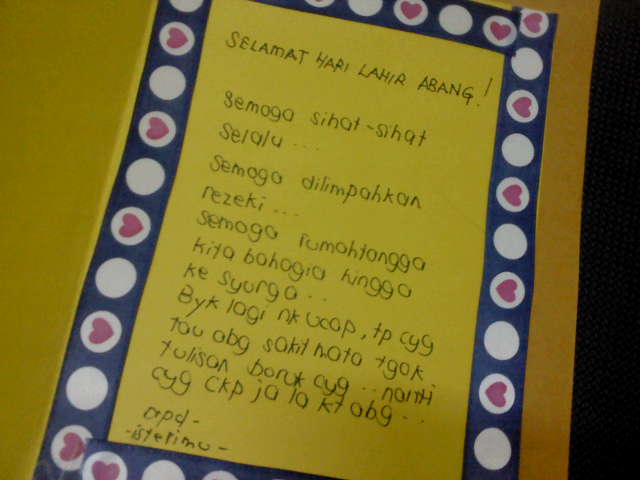 SELAMAT HARI LAHIR ABANG!
Semoga sihat-sihat
Selalu...
Semoga dilimpahkan
rezeki...
Semoga rumahtangga
kita bahagia hingga
ke syurga..
Byk lagi nk ucap, tp cyg
tau abg sakit mata tgok
tulisan boruk cyg.. nanti
cyg ckp ja la kt abg..
-isterimu-